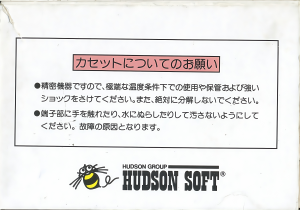 カセットについてのお願い
●精密機器ですので、極端な温度条件下での使用や保管および強い
ショックをさけてください。また、絶対に分解しないでください。
●端子部に手を触れたり、水にぬらしたりして汚さないようにして
ください。故障の原因となります。
HUDSON GROUP
HUDSON SOFT®